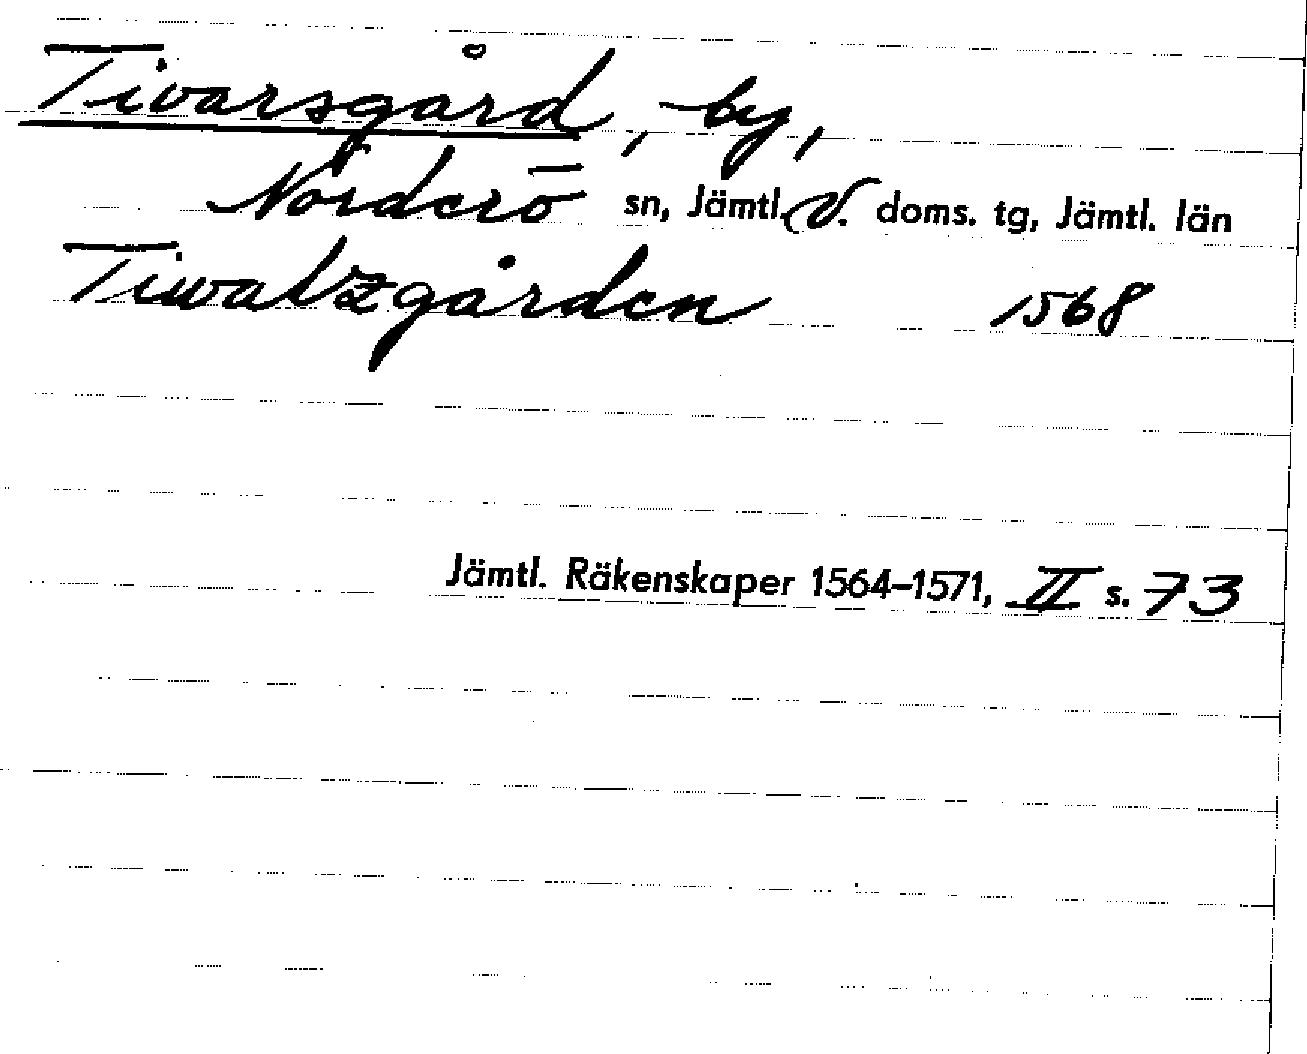 Tivarsgård, by,
Norderö sn, Jämtl. V. doms. tg, Jämtl. län
Tiwatzgården 1568
Jämtl. Räkenskaper 1564–1571, II s. 73